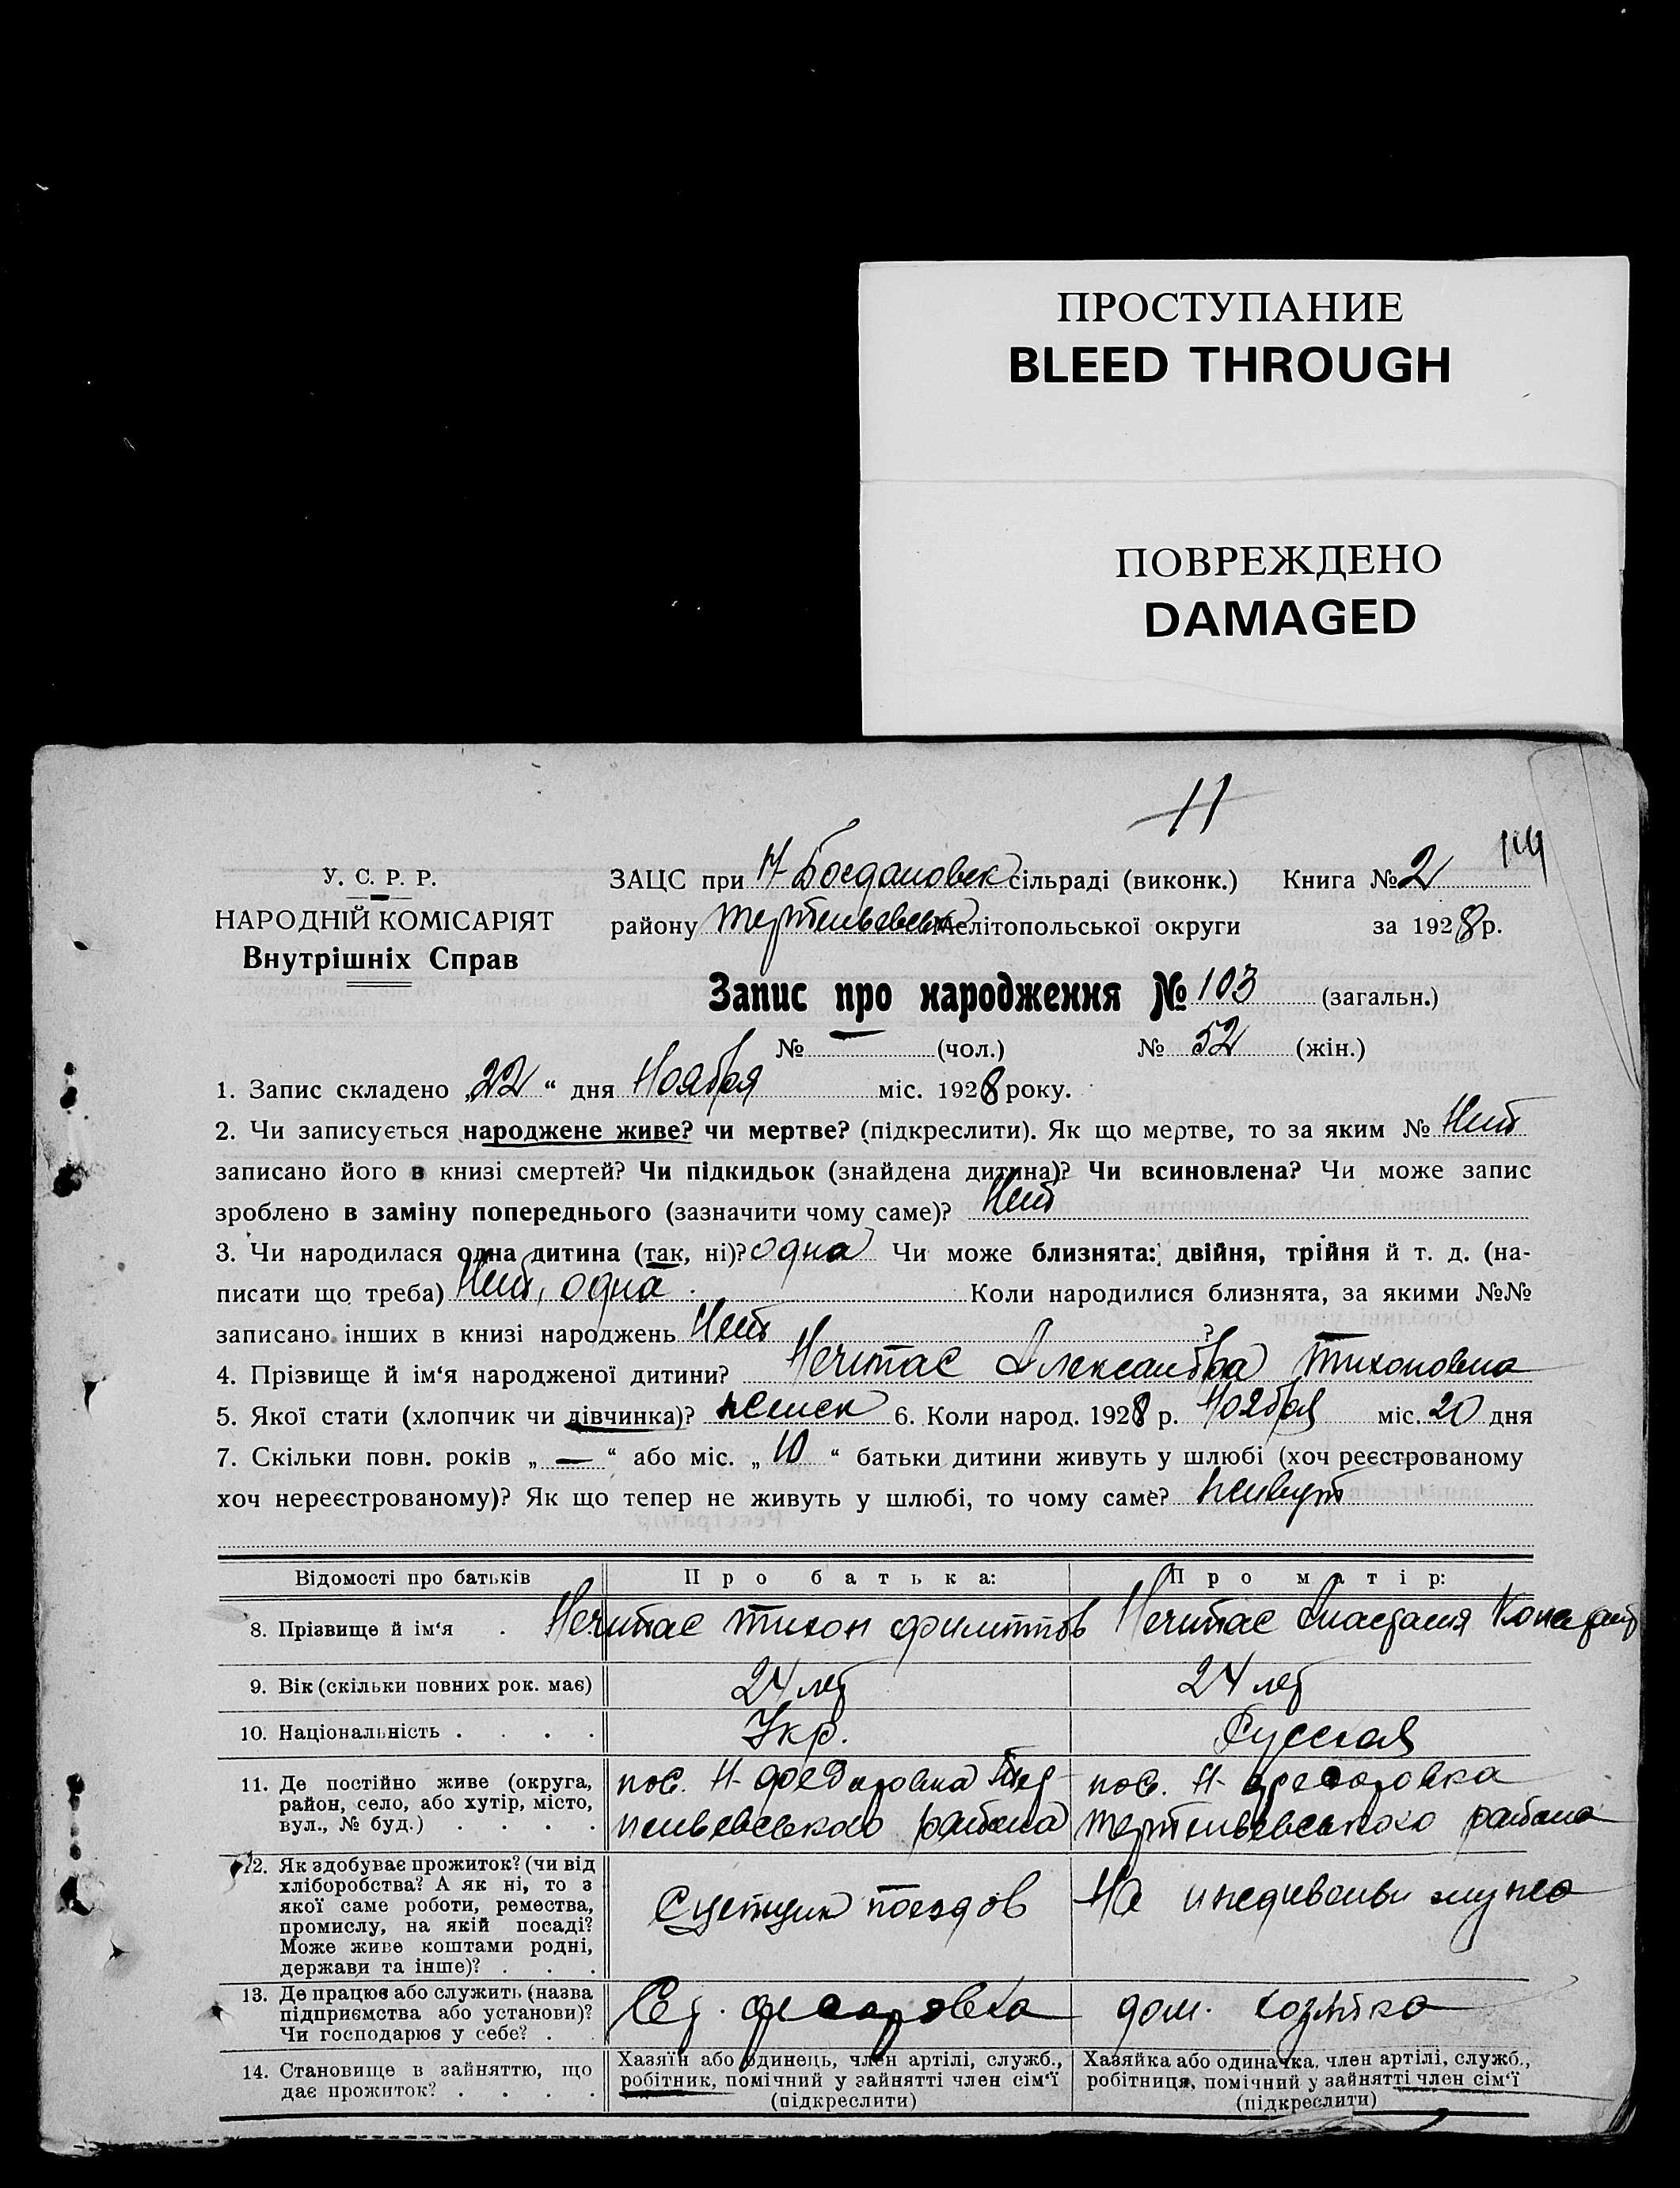 ПРОСТУПАНИЕ
BLEED THROUGH
ПОВРЕЖДЕНО
DAMAGED
11
У. С. Р. Р.
НАРОДНІЙ КОМІСАРІЯТ
Внутрішніх Справ
ЗАЦС при Н Богдановск сільраді (виконк.) Книга № 2
району Терпеньевськ Мелітопольської округи за 1928 р.
Запис про народження № 103 (загальн.)
№ — (чол.) № 52 (жін.)
1. Запис складено „22“ дня Ноября міс. 1928 року.
2. Чи записується народжене живе? чи мертве? (підкреслити). Як що мертве, то за яким № Нет
записано його в книзі смертей? Чи підкидьок (знайдена дитина)? Чи всиновлена? Чи може запис
зроблено в заміну попереднього (зазначити чому саме)? Нет
3. Чи народилася одна дитина (так, ні)? одна Чи може близнята: двійня, трійня й т. д. (на-
писати що треба) Нет, одна. Коли народилися близнята, за якими №№
записано інших в книзі народжень Нет ?
4. Прізвище й ім‘я народженої дитини? Нечитас Александра Тихоновна
5. Якої стати (хлопчик чи дівчинка)? женск 6. Коли народ. 1928 р. Ноября міс. 20 дня
7. Скільки повн. років „—“ або міс. „10“ батьки дитини живуть у шлюбі (хоч реєстрованому
хоч нереєстрованому)? Як що тепер не живуть у шлюбі, то чому саме? живут
Відомості про батьків Про батька: Про матір:
8. Прізвище й ім‘я . Нечитас Тихон Филиппов Нечитас Анастасия Констант
9. Вік (скільки повних рок. має) 24 лет 24 лет
10. Національність . . . . Укр. Русская
11. Де постійно живе (округа, район, село, або хутір, місто, вул., № буд.) . . . . пос. Н-Федоровка Тер-
пеньевського района пос. Н-Федоровка
Терпеньевського района
12. Як здобуває прожиток? (чи від хліборобства? А як ні, то з якої саме роботи, ремества, промислу, на якій посаді? Може живе коштами родні, держави та інше)? . . . Сцепщик поездов На иждивеньи мужа
13. Де працює або служить (назва підприємства або установи)? Чи господарює у себе? . Федоровка дом. хозяйка
14. Становище в зайняттю, що дає прожиток? . . . . Хазяїн або одинець, член артілі, служб., робітник, помічний у зайнятті член сім‘ї (підкреслити) Хазяйка або одиначка, член артілі, служб., робітниця, помічний у зайнятті член сім‘ї (підкреслити)